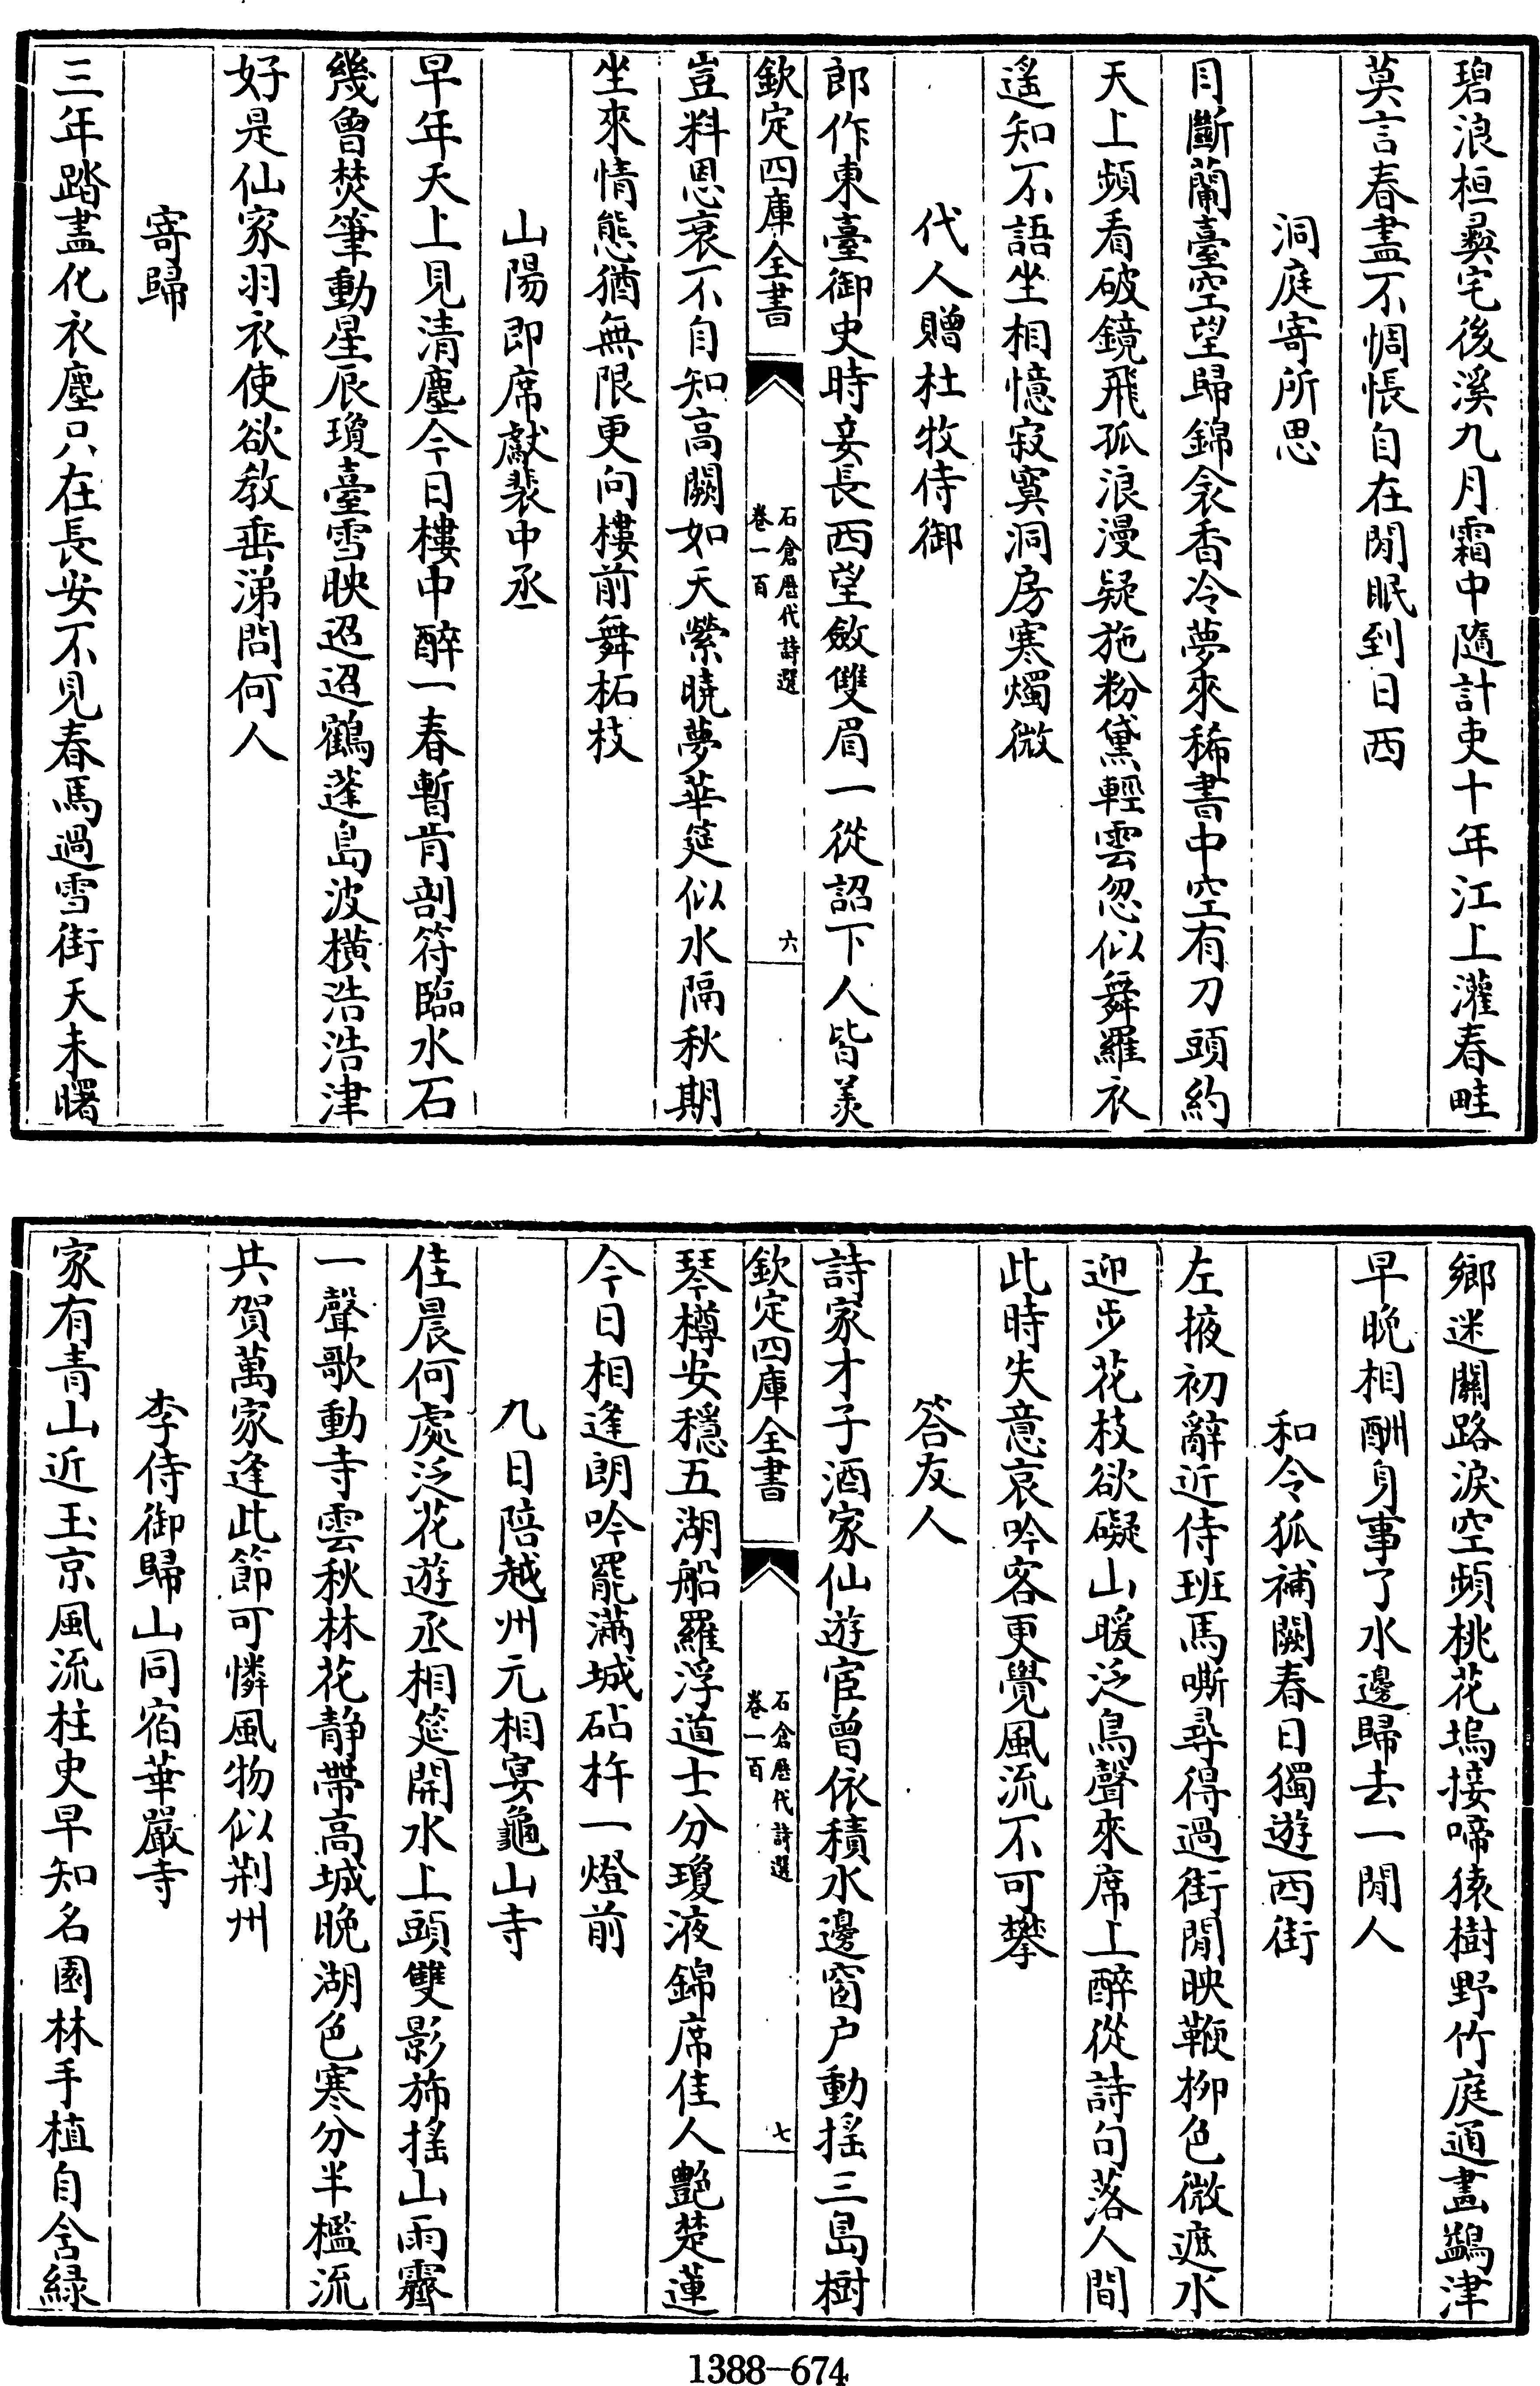 碧浪桓彛宅後溪九月霜中隨計吏十年江上灌春畦
莫言春盡不惆悵自在閒眠到日西
洞庭寄所思
目斷蘭臺空望歸錦衾香冷夢來稀書中空有刀頭約
天上頻看破鏡飛孤浪漫疑施粉黛輕雲忽似舞羅衣
遙知不語坐相憶寂寞洞房寒燭微
代人贈杜牧侍御
郎作東臺御史時妾長西望斂雙眉一從詔下人皆羨
欽定四庫全書
石倉歷代詩選
卷一百
六
豈料恩衰不自知高闕如天縈曉夢華筵似水隔秋期
坐來情態猶無限更向樓前舞柘枝
山陽即席獻裴中丞
早年天上見清塵今日樓中醉一春暫肯剖符臨水石
幾曾焚筆動星辰瓊臺雪映迢迢鶴蓬島波橫浩浩津
好是仙家羽衣使欲教垂涕問何人
寄歸
三年踏盡化衣塵只在長安不見春馬過雪街天未曙
鄉迷關路淚空頻桃花塢接啼猿樹野竹庭通畫鷁津
早晚相酬身事了水邊歸去一閒人
和令狐補闕春日獨遊西街
左掖初辭近侍班馬嘶尋得過街閒映鞭柳色微遮水
迎步花枝欲礙山暖泛鳥聲來席上醉從詩句落人間
此時失意哀吟客更覺風流不可攀
答友人
詩家才子酒家仙遊宦曾依積水邊窗户動搖三島樹
欽定四庫全書
石倉歷代詩選
卷一百
七
琴樽安穩五湖船羅浮道士分瓊液錦席佳人艷楚蓮
今日相逢朗吟罷滿城砧杵一燈前
九日陪越州元相宴龜山寺
佳晨何處泛花遊丞相筵開水上頭雙影斾搖山雨霽
一聲歌動寺雲秋林花静帶高城晚湖色寒分半檻流
共賀萬家逢此節可憐風物似荆州
李侍御歸山同宿華嚴寺
家有青山近玉京風流柱史早知名園林手植自含緑
1388-674